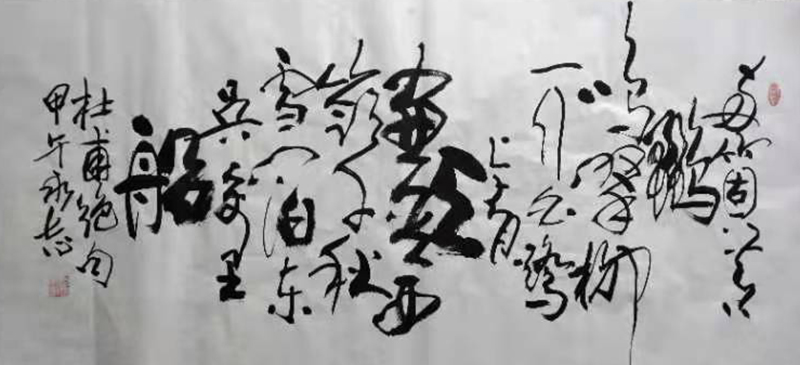 两箇黄
鸝
鸣翠柳
一行白鹭
上青
窗含西
岭千秋
雪门泊东
吴萬里
船
杜甫绝句
甲午永志